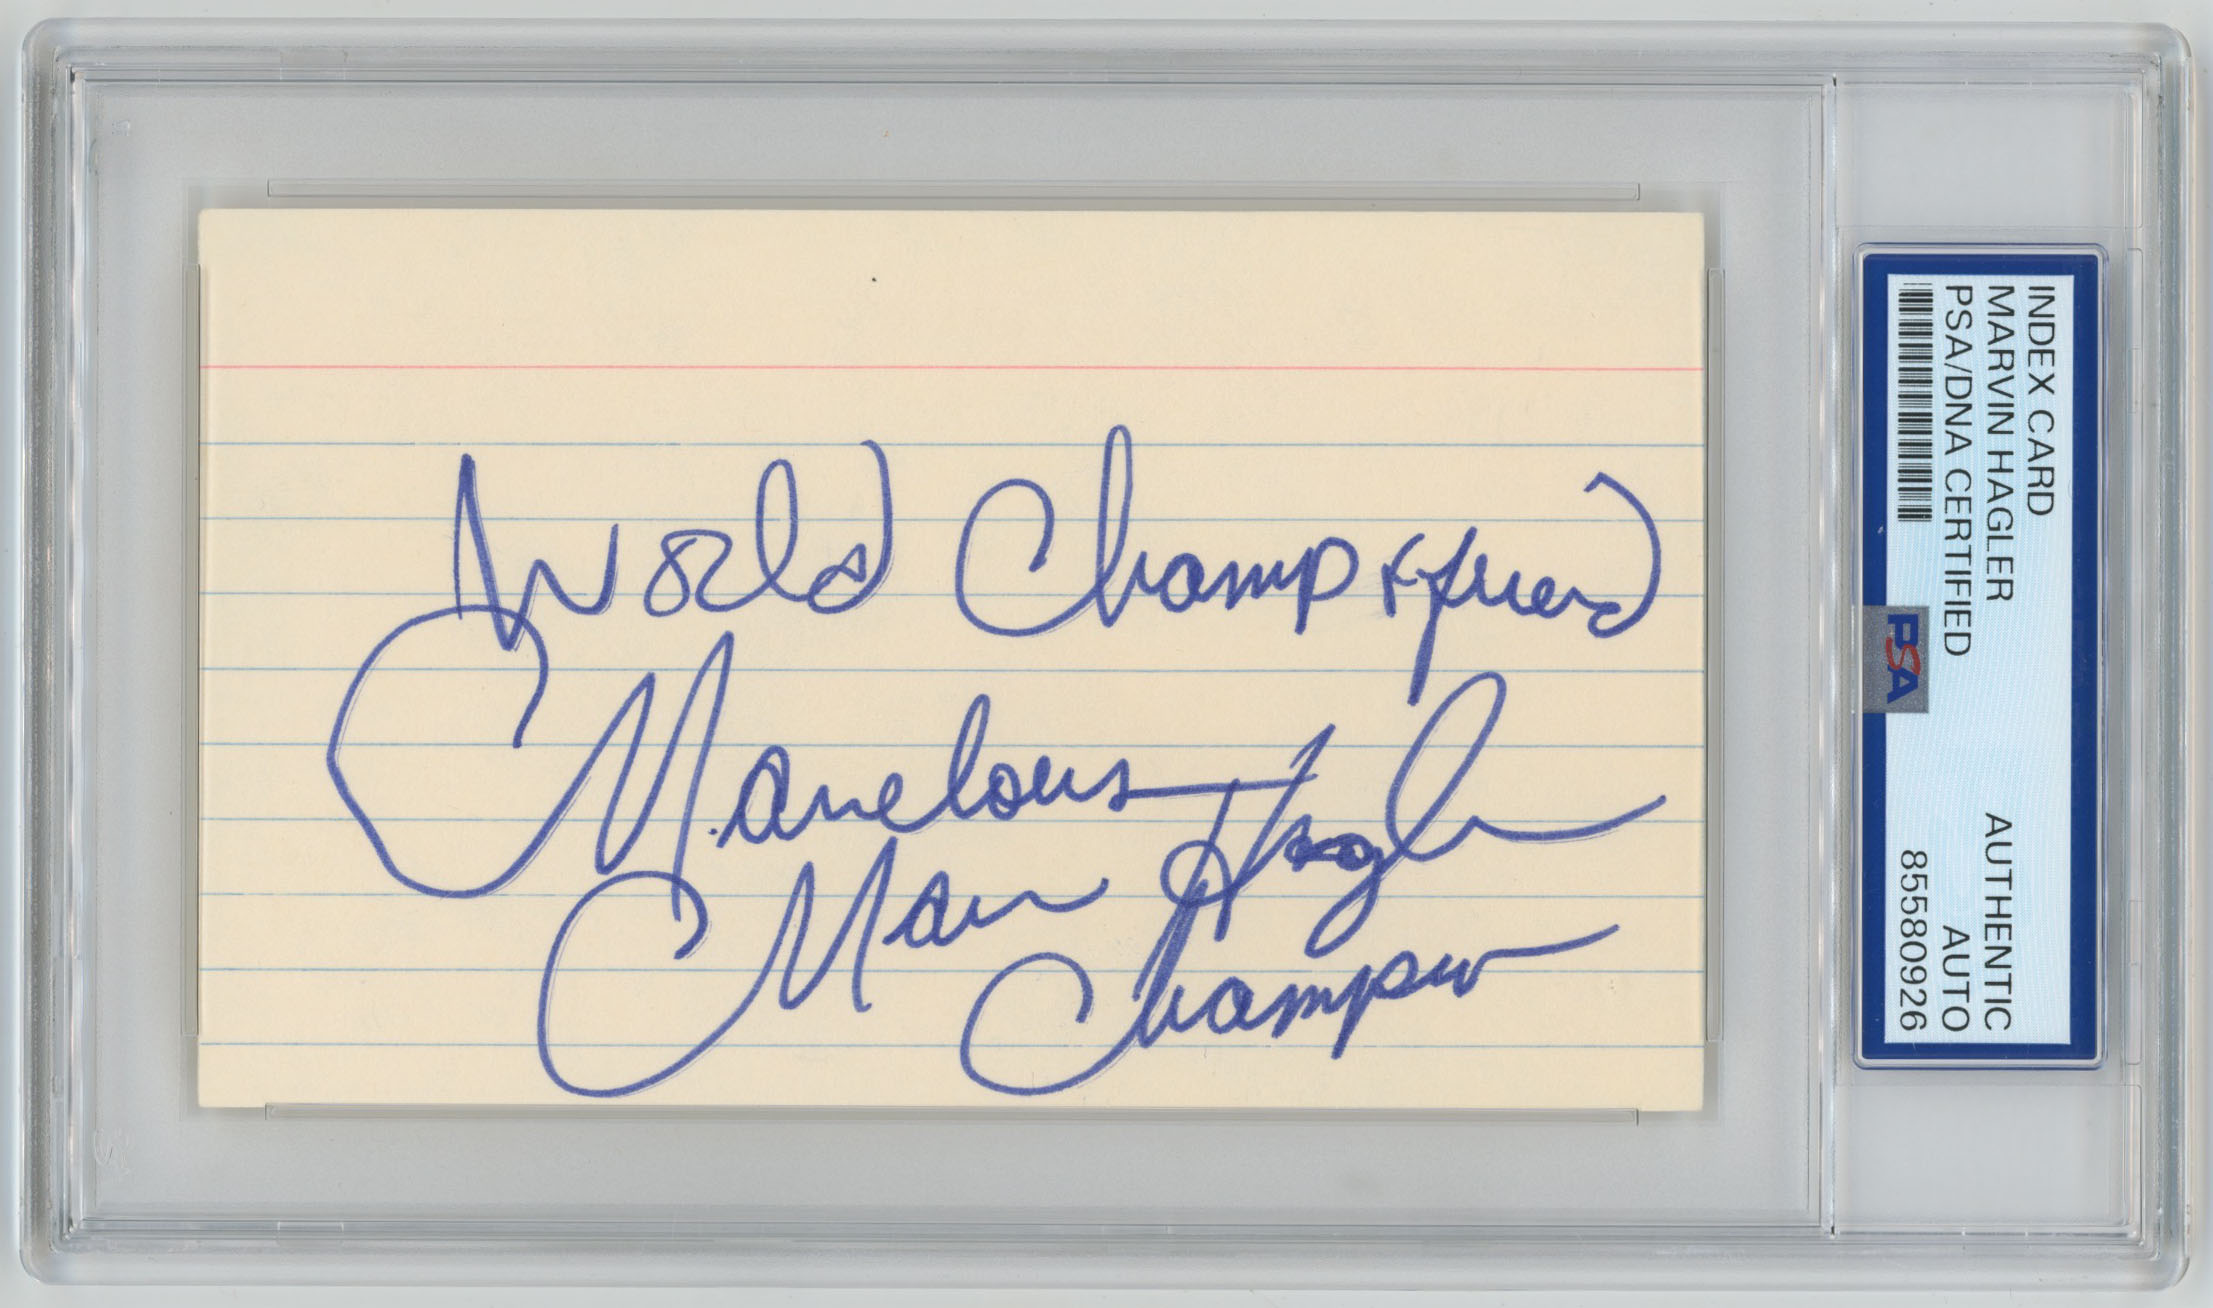 World Champ + friend
Marvelous Hagler
Champion
INDEX CARD
MARVIN HAGLER
PSA/DNA CERTIFIED
AUTHENTIC
AUTO
85580926
PSA